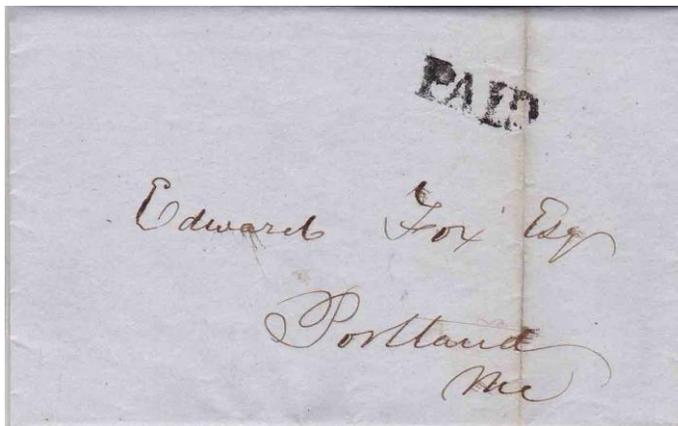 PAID
Edward Fox Esq
Portland
Me